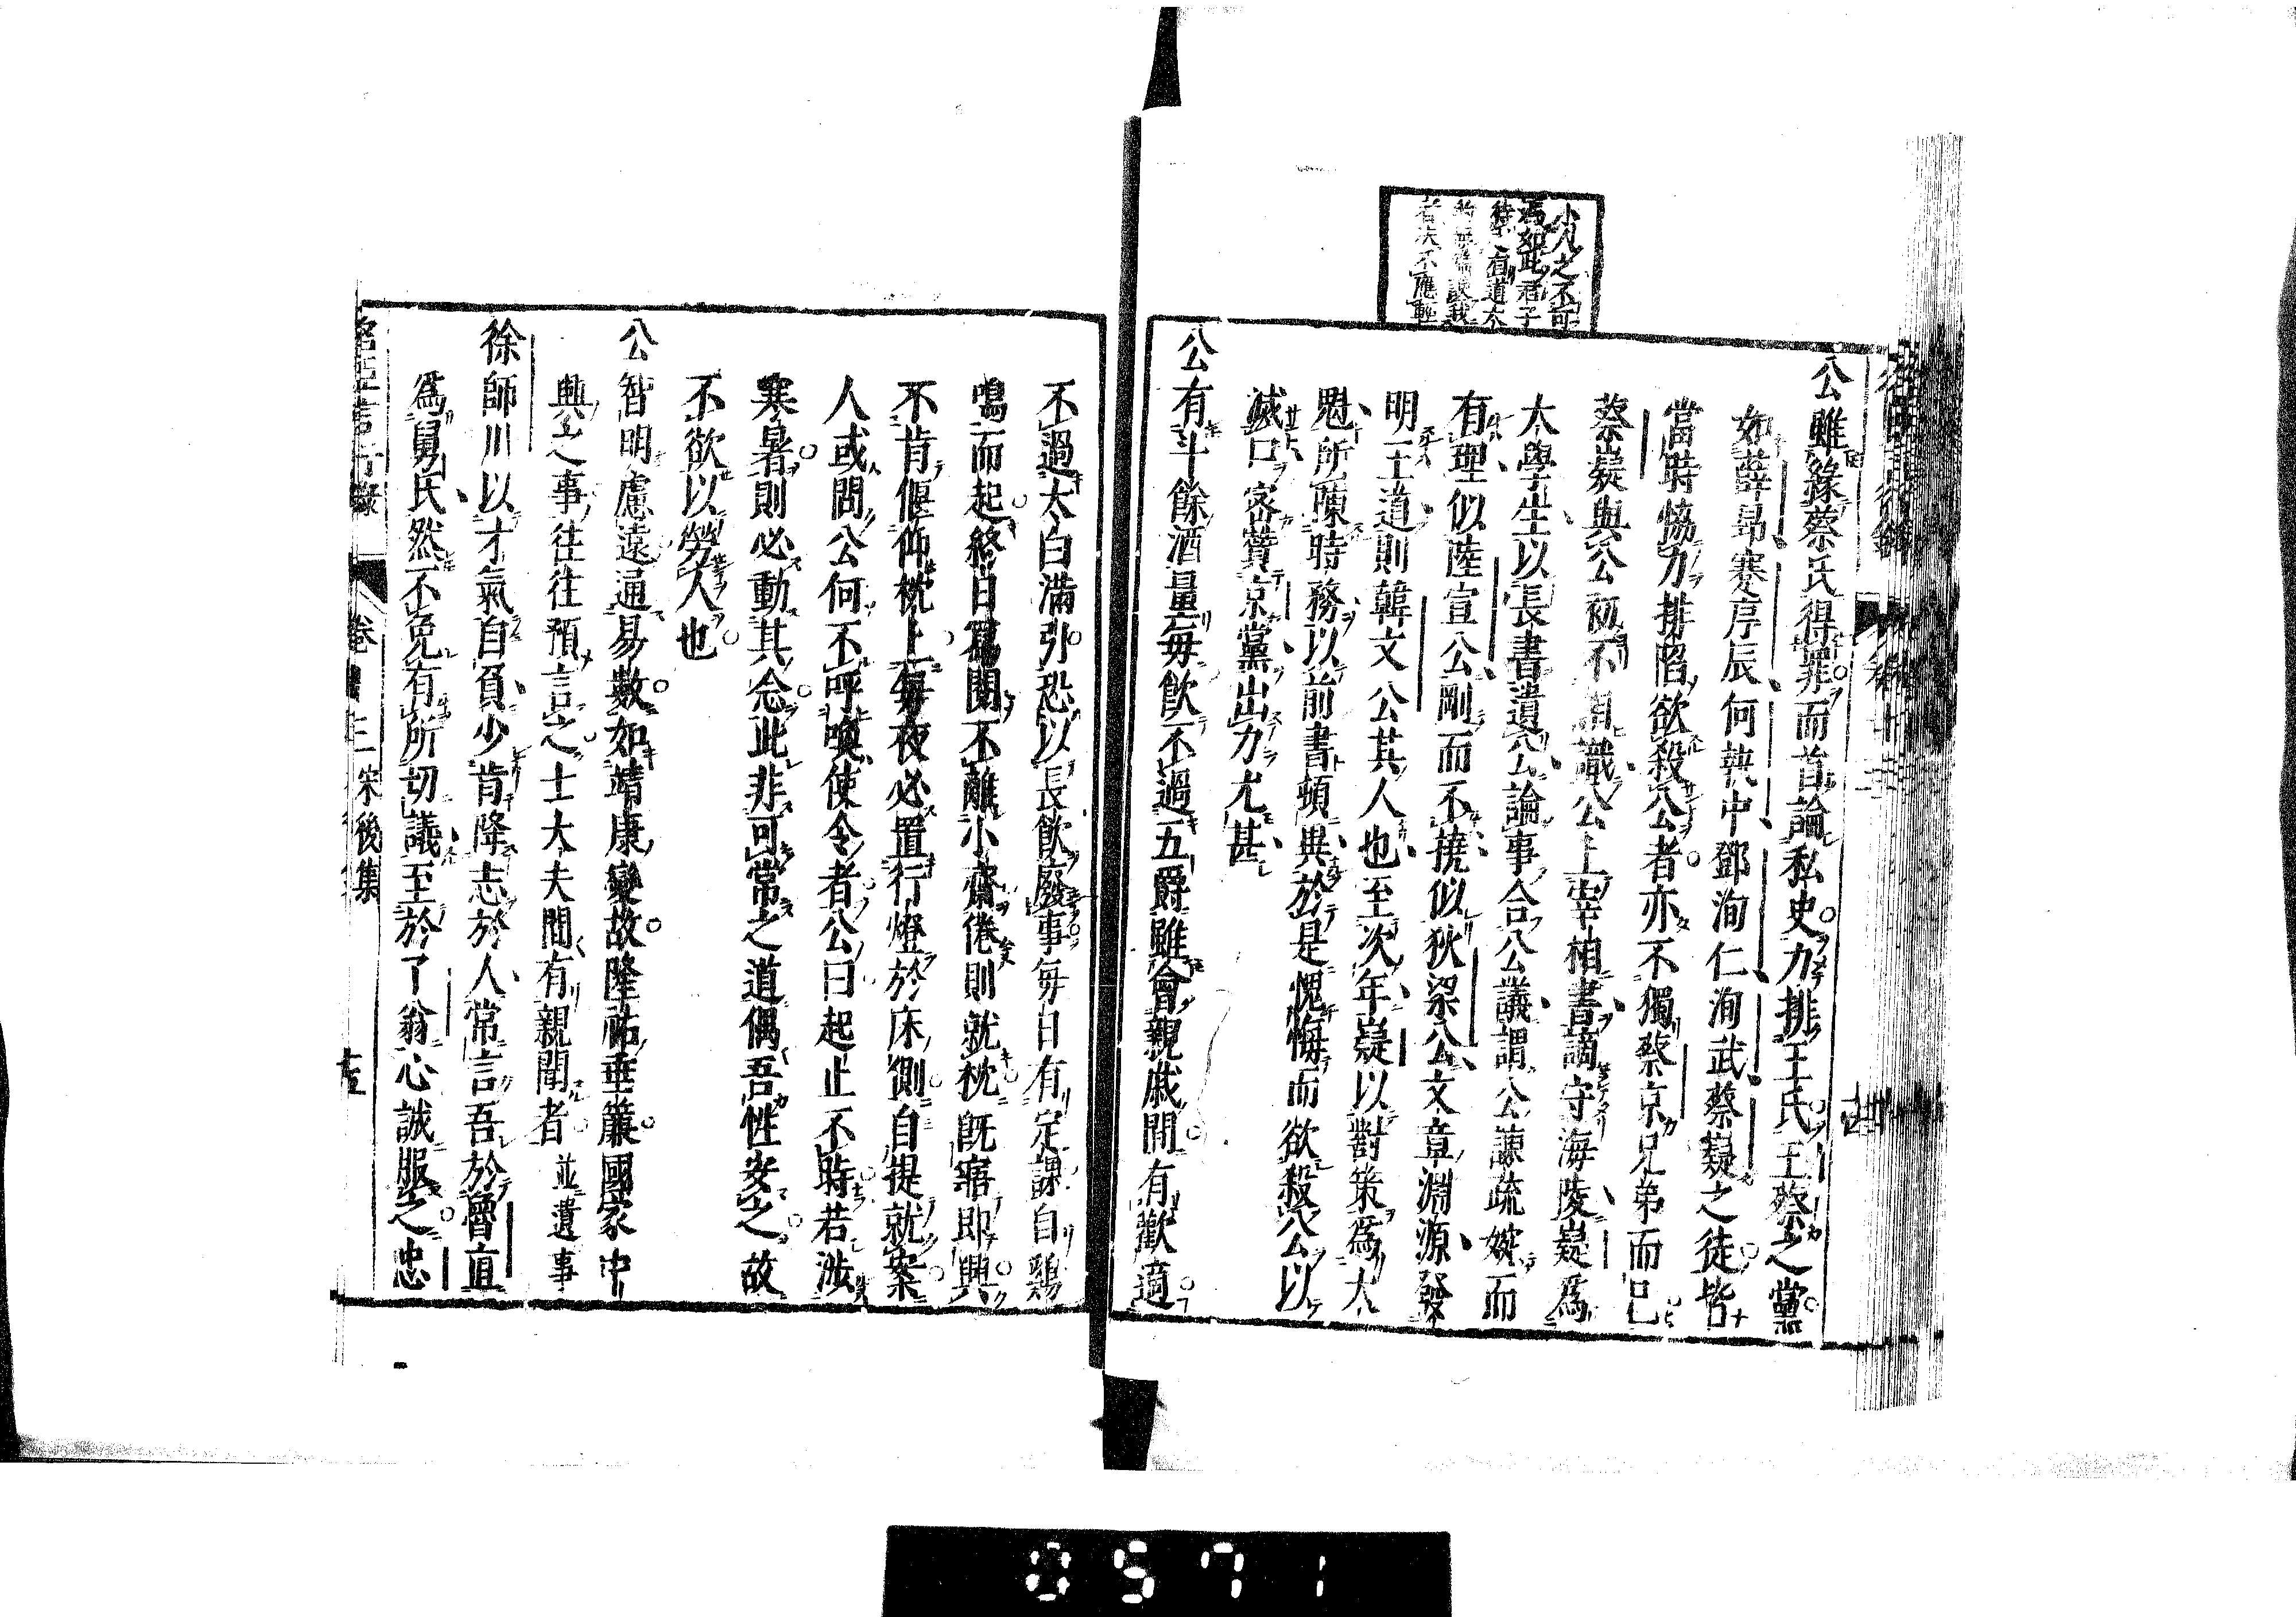 小人之不可
馮如此君子
待之有道不
者決不應輕
公雖緣蔡氏得罪而首論私史力排王氏王蔡之黨
如薛昂蹇序辰何執中鄧洵仁洵武蔡嶷之徒皆
當時恊力排陷欲殺公者亦不獨蔡京兄弟而已
蔡嶷與公初不相識公上宰相書謫守海陵嶷爲
太學生以長書遺公論事合公議謂公諫疏婉而
有理似陸宣公剛而不撓似狄梁公文章淵源發
明王道則韓文公其人也至次年嶷以對策爲大
魁所陳時務以前書頓異於是愧悔而欲殺公以
滅口密贊京黨出力尤甚
公有斗餘酒量毎飲不過五爵雖會親戚間有歡適
不過太白滿引恐以長飲廢事毎日有定課自鷄
鳴而起終日寫閱不離小齋倦則就枕既寤即興
不肯偃仰枕上每夜必置行燈於床側自提就案
人或問公何不呼喚使令者公曰起止不時若涉
寒暑則必動其念此非可常之道偶吾性安之故
不欲以勞人也
公智明慮遠通易數如靖康變故隆祐垂簾國家中
興之事往往預言之士大夫間有親聞者 並遺事
徐師川以才氣自負少肯降志於人常言吾於魯直
爲舅氏然不免有所切議至於了翁心誠服之忠
名臣言行錄 卷十三 宋後集 十五